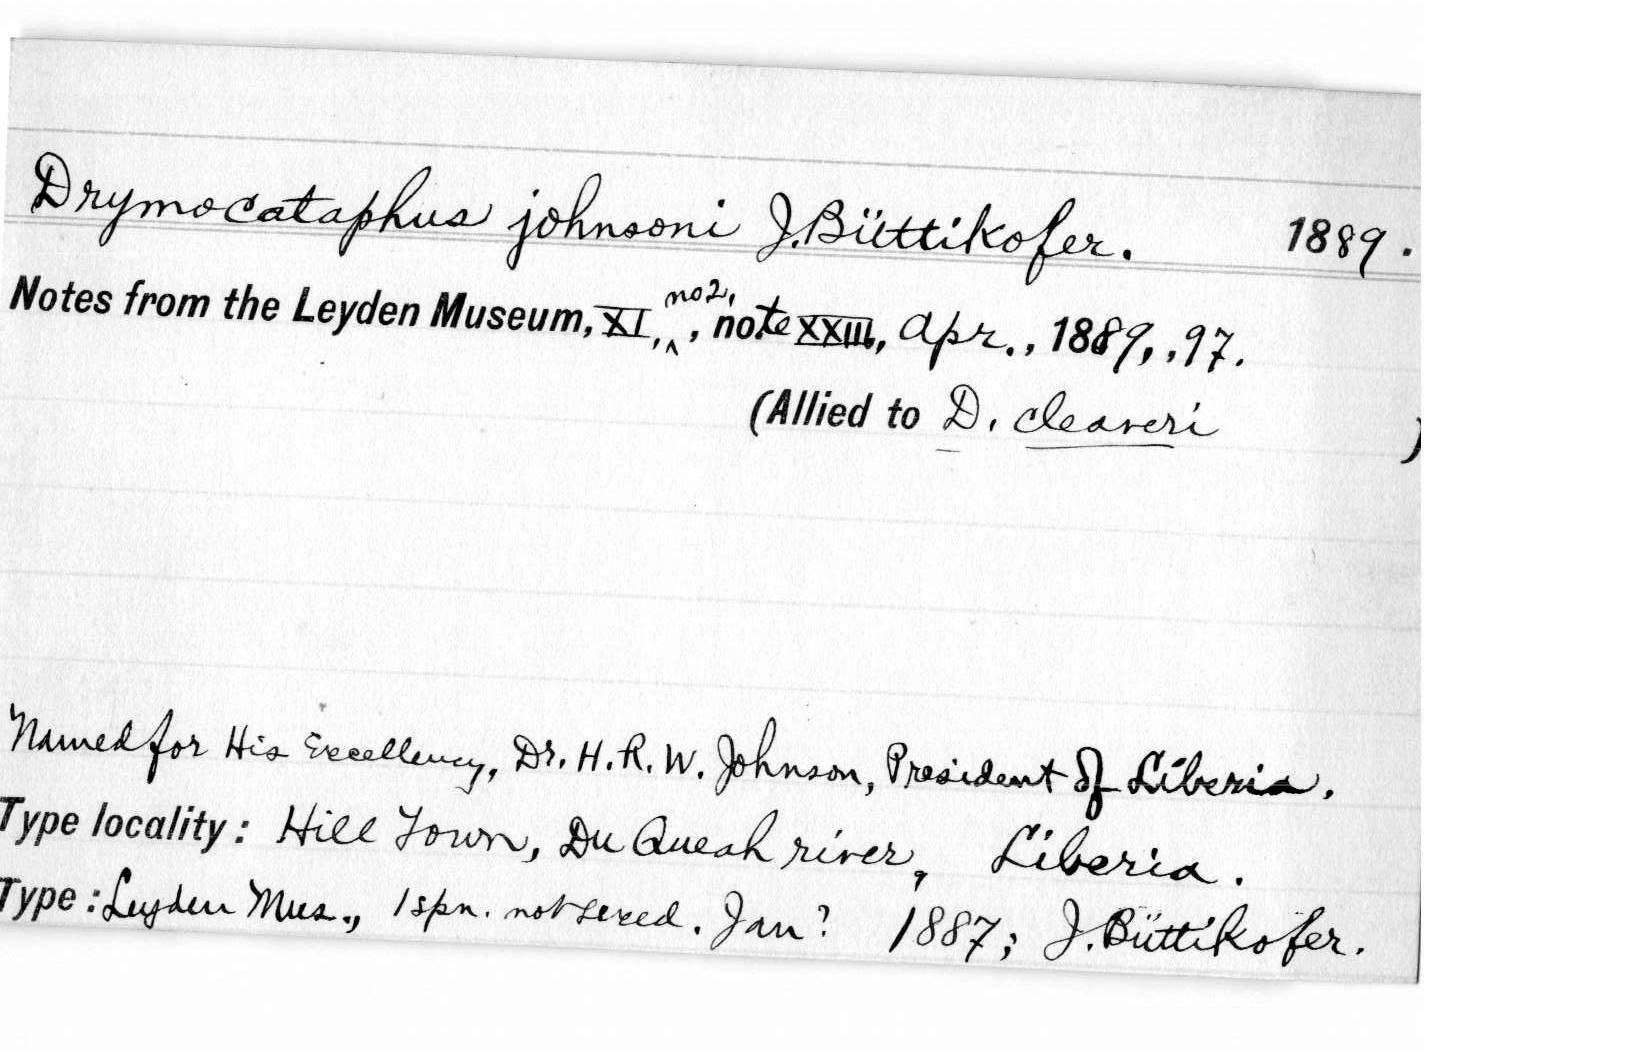 Drymocataphus johnsoni J. Büttikofer. 1889.
Notes from the Leyden Museum, XI, no 2, , note XXIII, Apr., 1889, , 97.
(Allied to D. cleaveri )
Named for His Excellency, Dr. H. R. W. Johnson, President of Liberia.
Type locality: Hill Town, Du Queah river, Liberia.
Type: Leyden Mus., 1 spn. not sexed. Jan? 1887; J. Büttikofer.